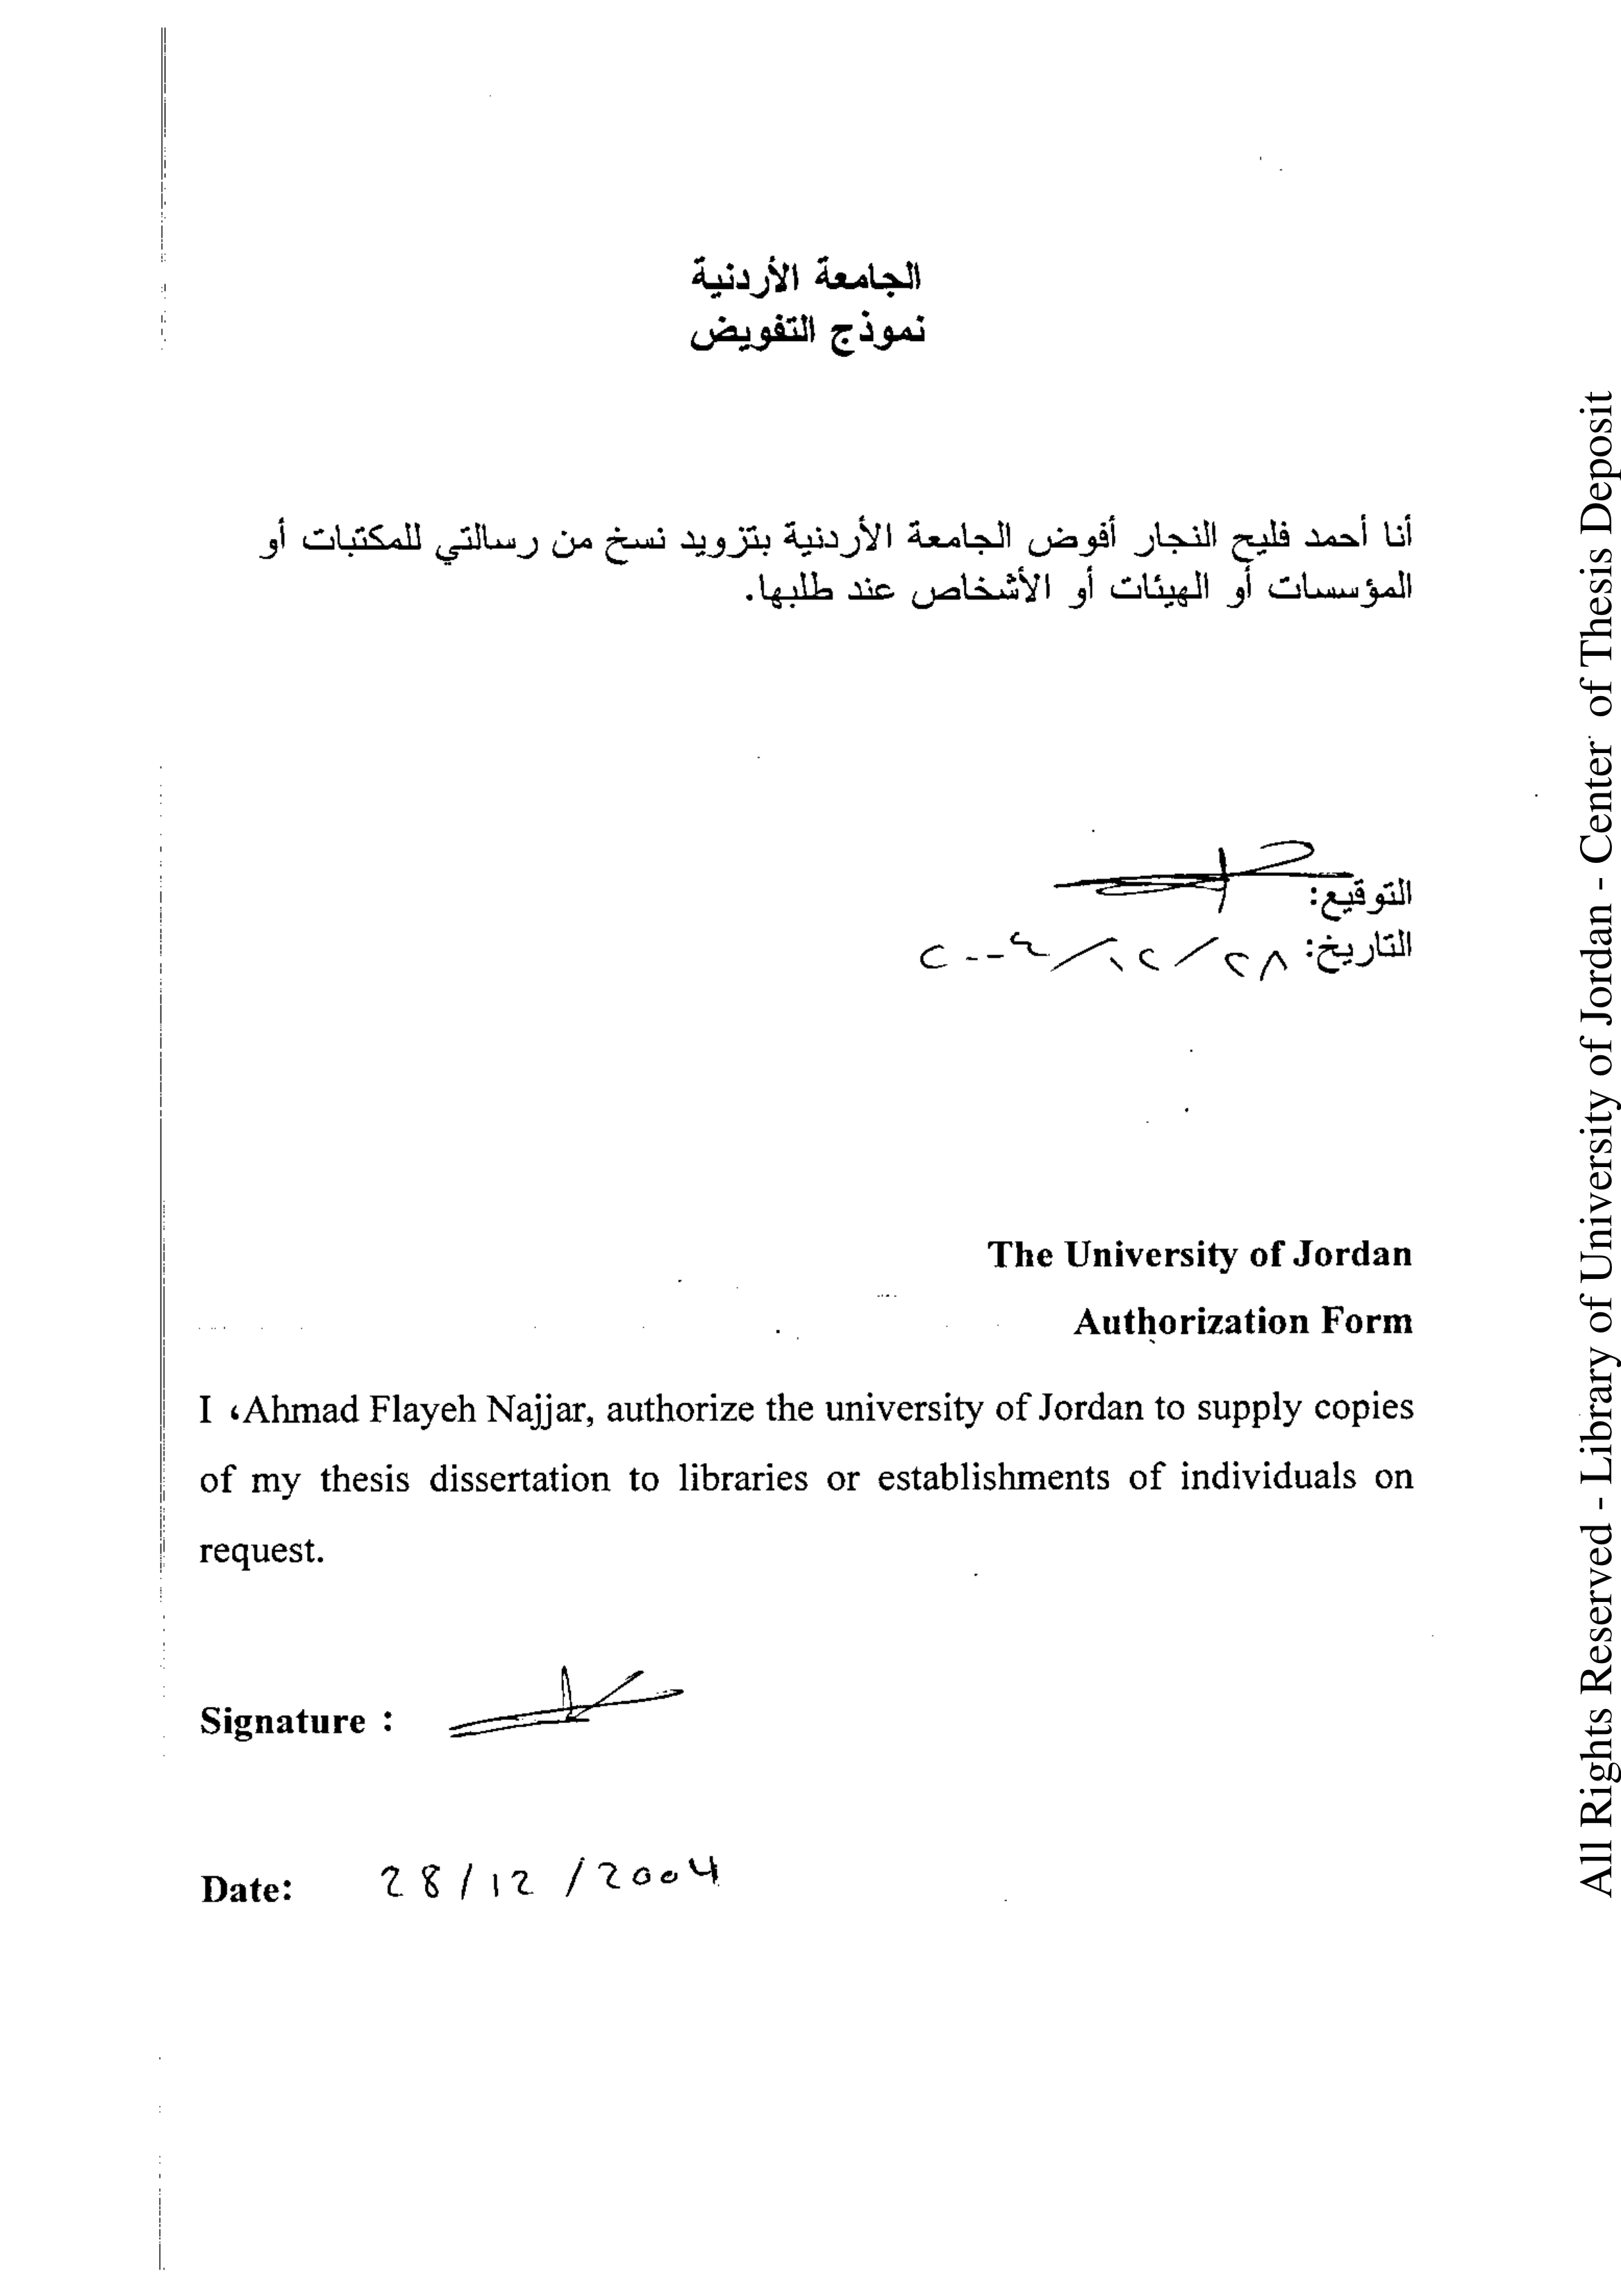 الجامعة الأردنية
نموذج التفويض
أنا أحمد فليح النجار أفوض الجامعة الأردنية بتزويد نسخ من رسالتي للمكتبات أو
المؤسسات أو الهيئات أو الأشخاص عند طلبها.
التوقيع:
التاريخ: ٢٨/١٢/٢٠٠٤
The University of Jordan
Authorization Form
I ،Ahmad Flayeh Najjar, authorize the university of Jordan to supply copies
of my thesis dissertation to libraries or establishments of individuals on
request.
Signature :
Date: 28/12/2004
All Rights Reserved - Library of University of Jordan - Center of Thesis Deposit